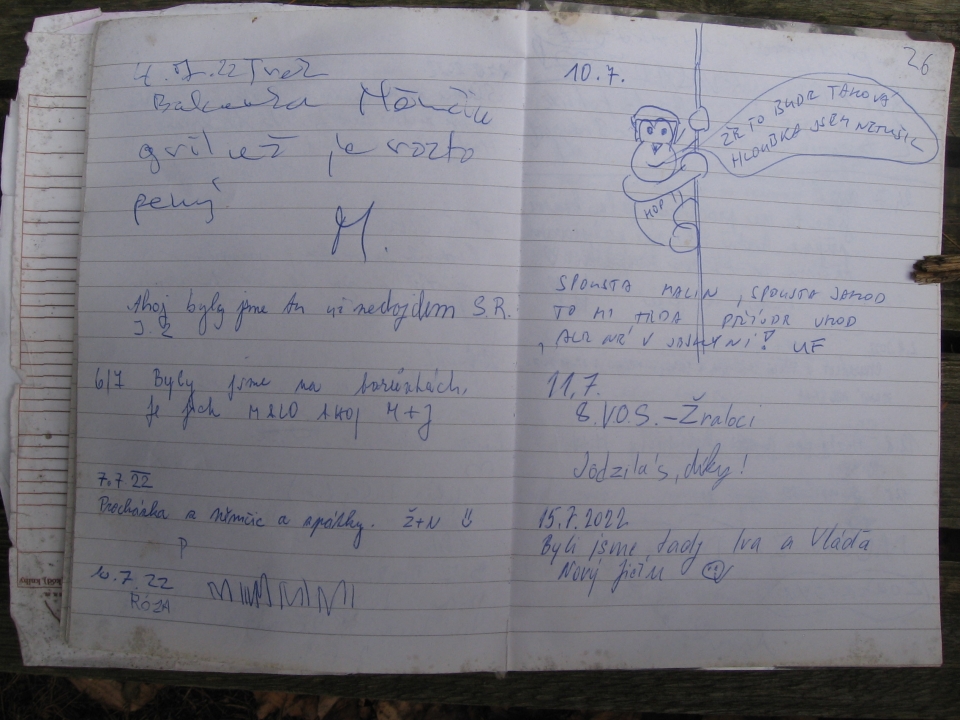 4. 7. 22
gril už je rozto
pený
M.
Ahoj byly jsme tu už nedojdem S.R.
J. Z
6/7 Byly jsme na borůvkách,
je jich MÁLO AHOJ M+J
7.7 22
Procházka z Němčic a zpátky. Ž+N
P
10.7.22
RÓZA
26
10.7.
ŽE TO BUDE TAKOVÁ
HLOUBKA JSEM NETUŠIL
HOP!!
SPOUSTA MALIN, SPOUSTA JAHOD
TO MI TEDA PŘIJDE VHOD
, ALE NE V JESKYNI! UF
11,7.
8. V.O.S. – Žraloci
Jodzila's, díky!
15.7.2022
Byli jsme tady Iva a Vláďa
Nový Jičín